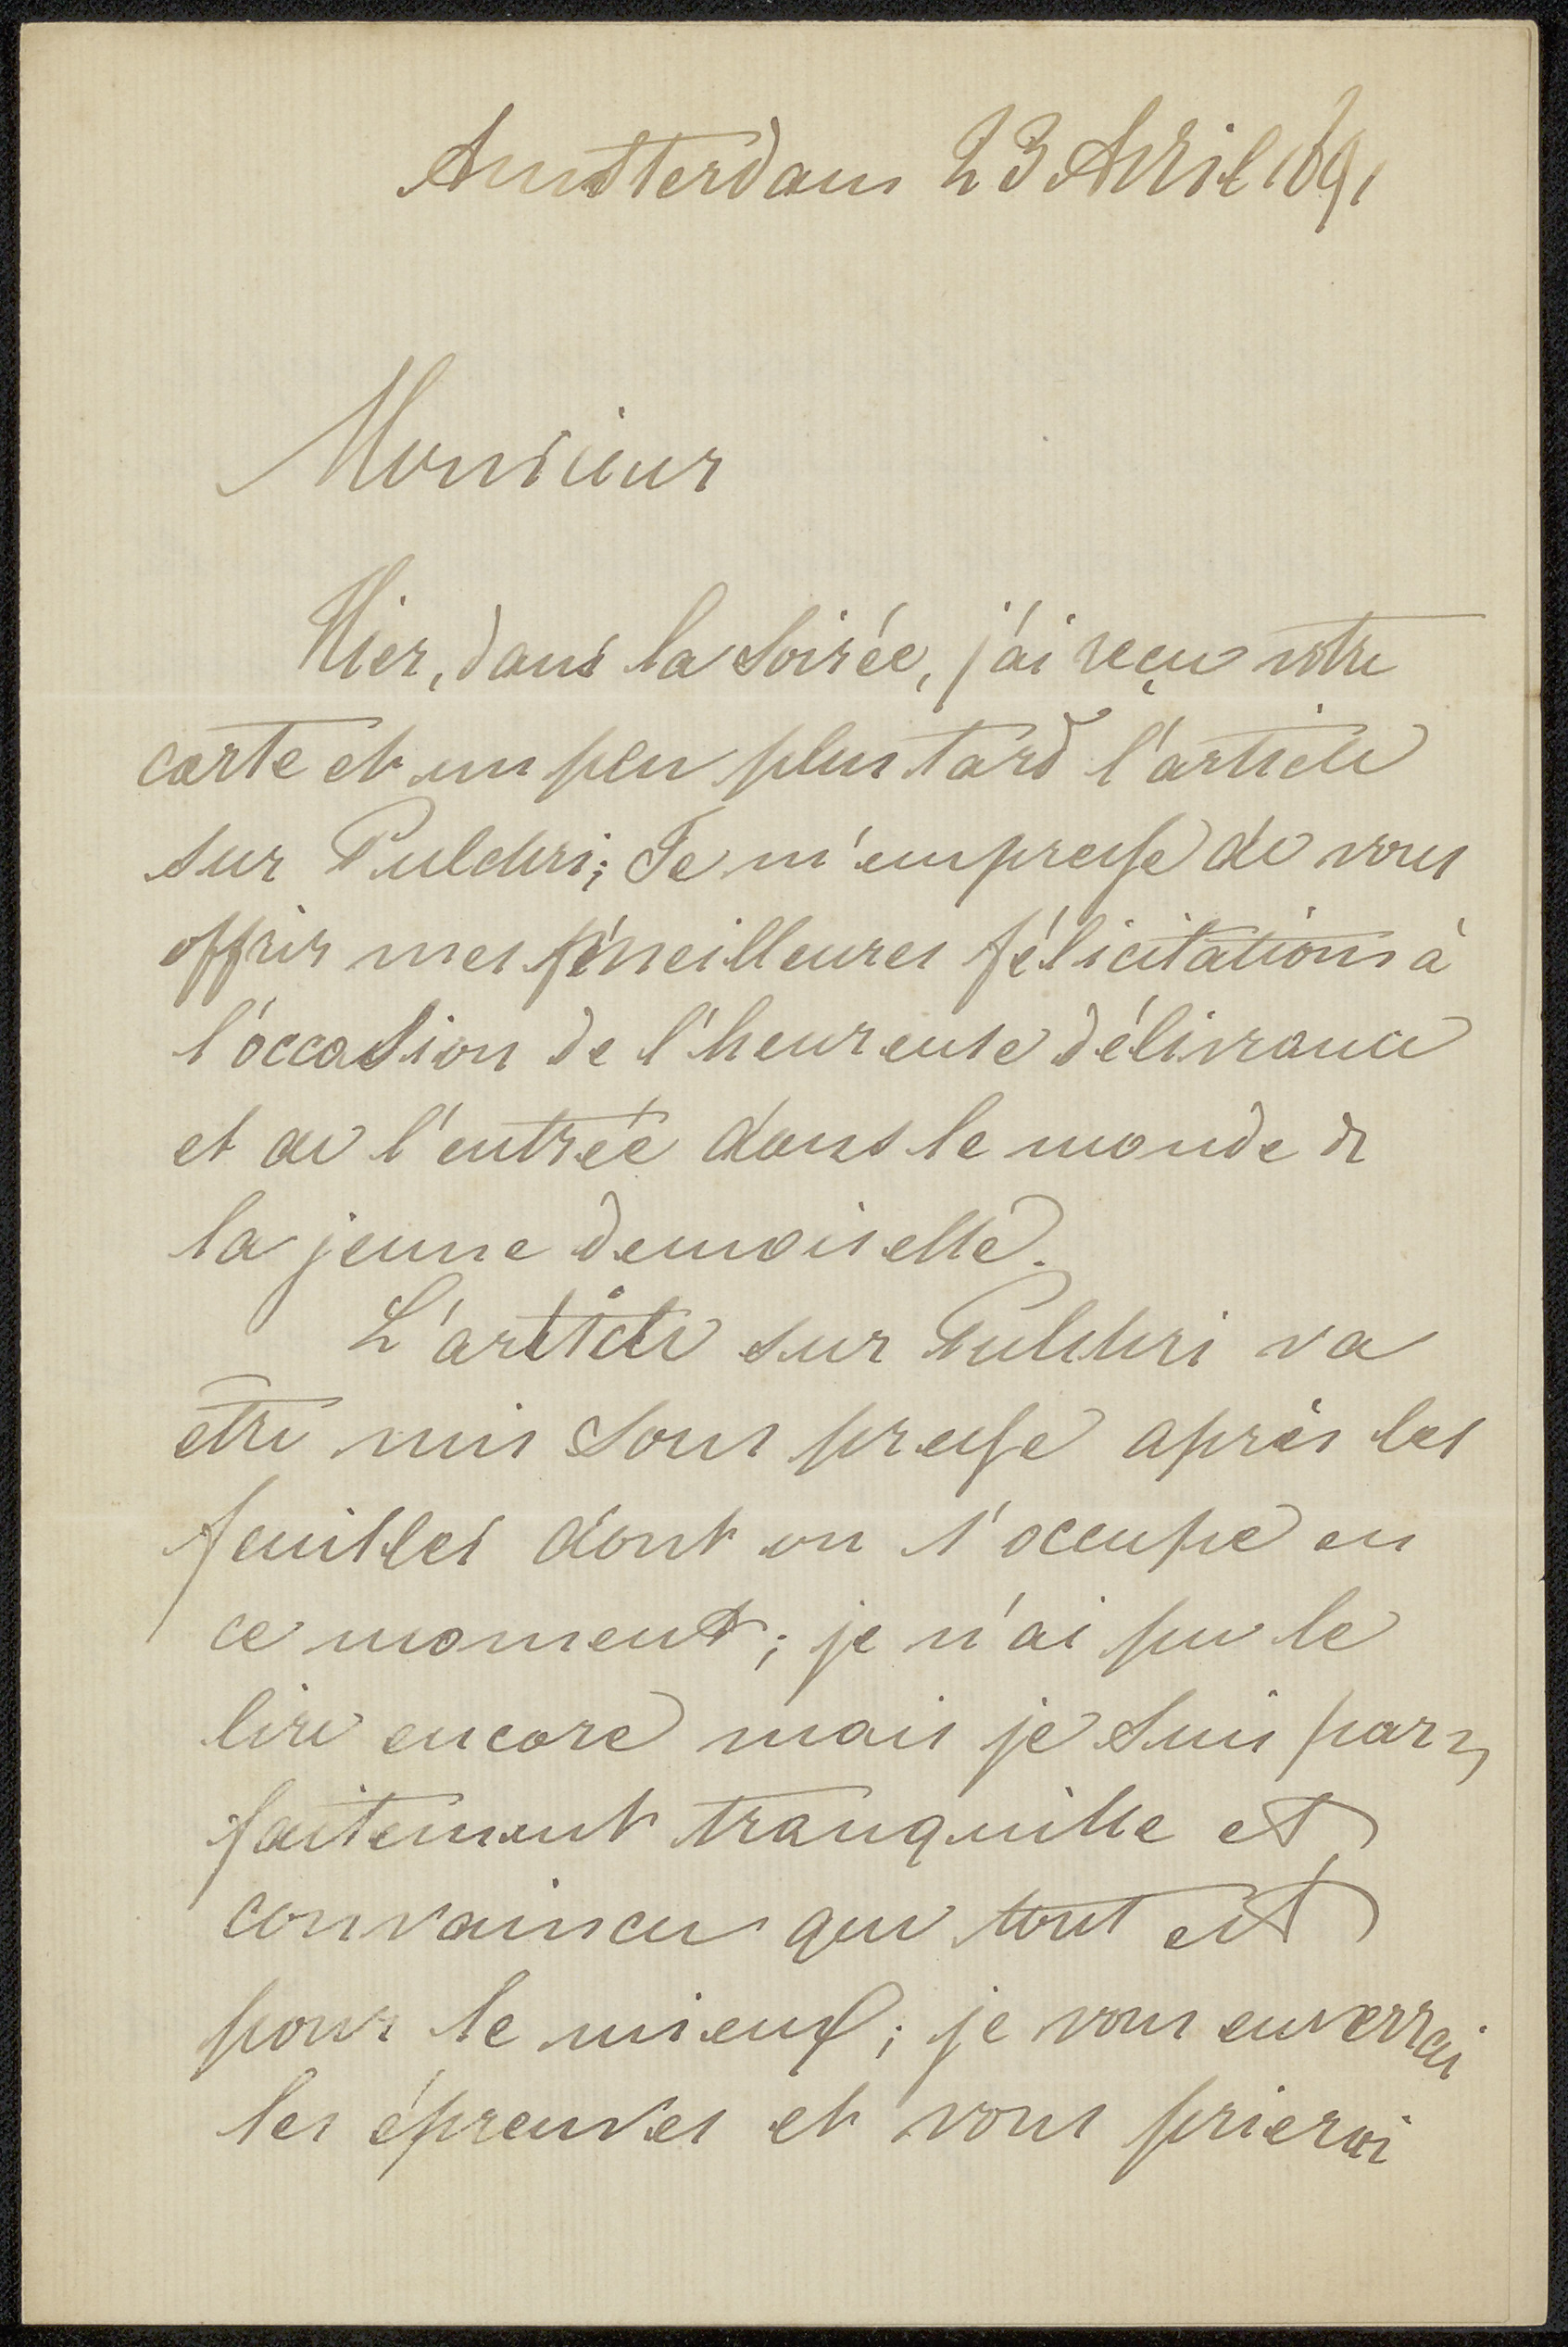 Amsterdam 23 Avril 1891
Monsieur
Hier, dans la soirée, j'ai reçu votre
carte et un peu plus tard l'article
sur Pulchri; Je m'empresse de vous
offrir mes meilleures félicitations à
l'occasion de l'heureuse délivrance
et de l'entrée dans le monde de
la jeune demoiselle.
L'article sur Pulchri va
être mis sous presse après les
feuilles dont on s'occupe en
ce moment; je n'ai pu le
lire encore mais je suis par=
faitement tranquille et
convaincu que tout est
pour le mieux; je vous enverrai
les épreuves et vous prierai